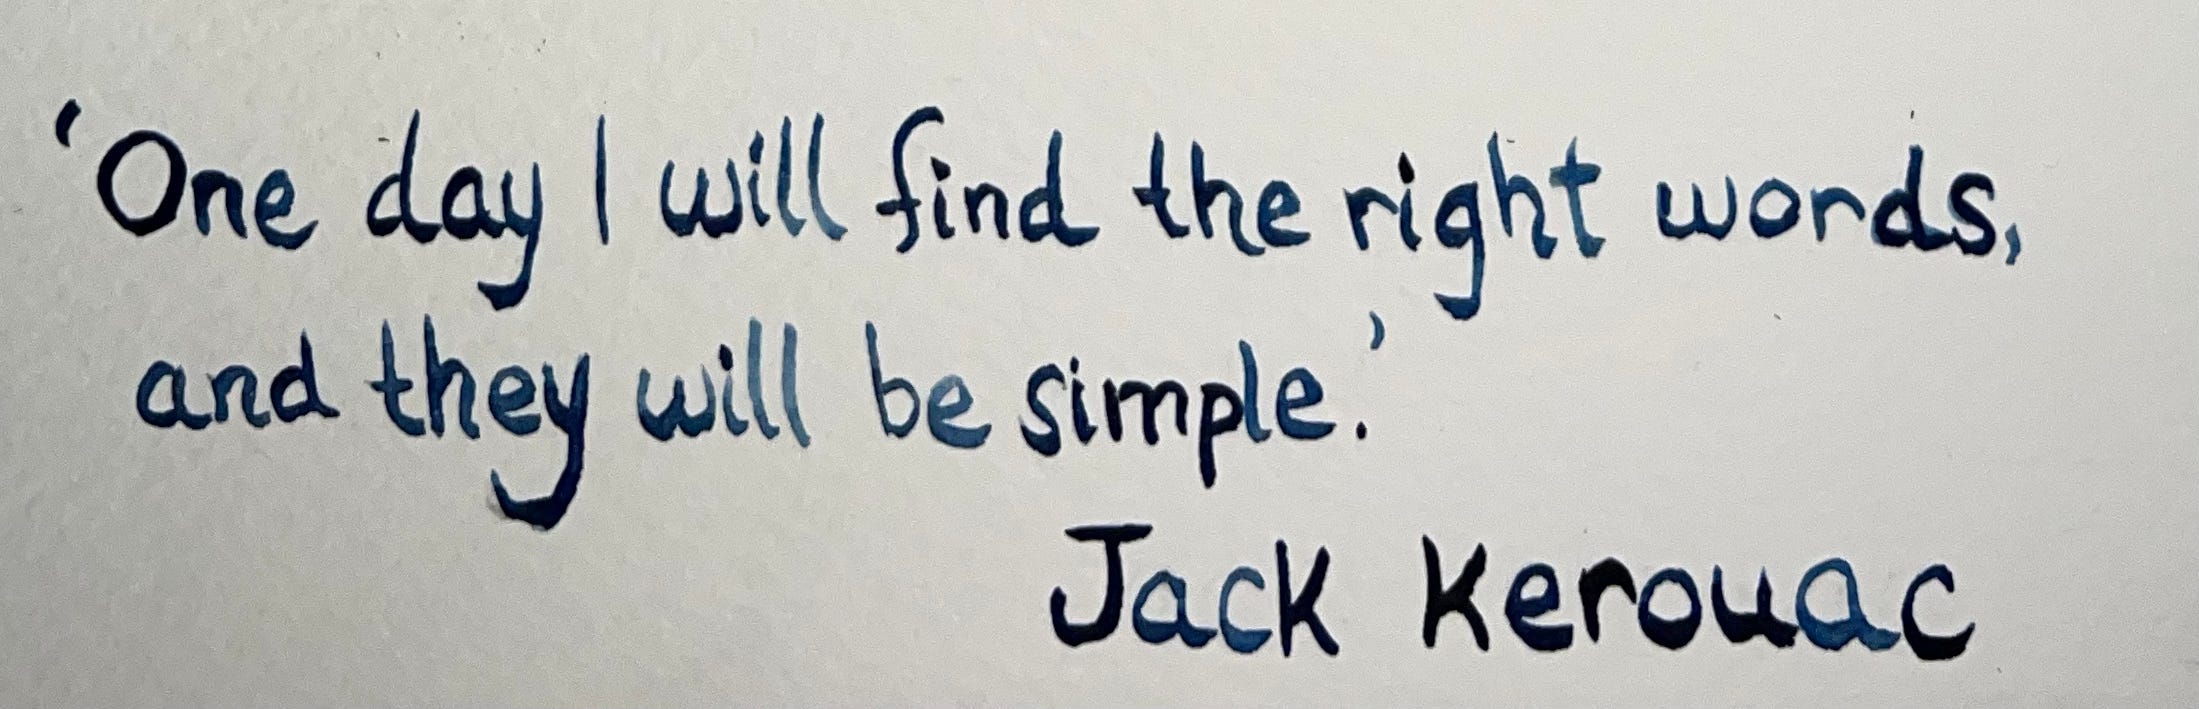 ‘One day I will find the right words,
and they will be simple.’
Jack Kerouac